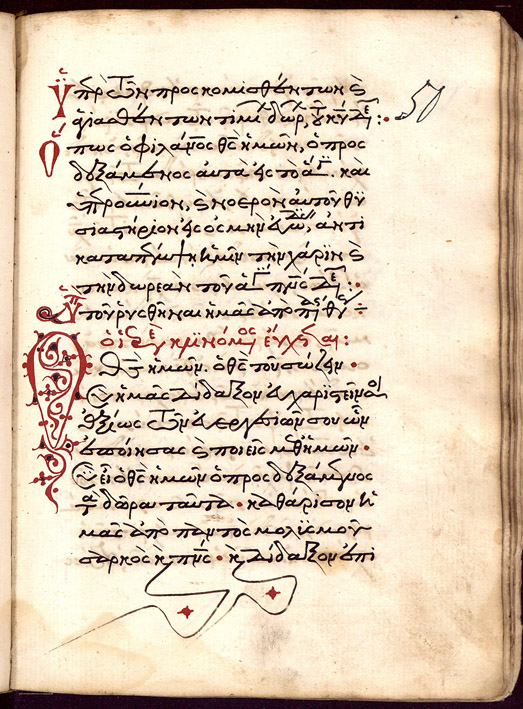 Ὑπὲρ τῶν προσκομισθέντων καὶ
ἁγιασθέντων τιμί δώρ, τοῦ κυ δε : 50
Ὅπως ὁ φιλάνος θεὸς ἡμῶν, ὁ προσ
δεξάμενος αὐτὰ εἰς τὸ ἅγ. καὶ
ὑπερουνιον, καὶ νοερὸν αὐτοῦ θυ
σιαστήριον εἰς ὀσμὴν εὐω, ἀντι
καταπέμψη ἡμῖν τὴν χάριν καὶ
τὴν δωρεὰν τοῦ ἁγ πνς δε :
Ὑπ τοῦ ῥυσθῆναι ἡμᾶς ἀπὸ πάσης θλ
εὔχεται :
Ὁ θς ἡμῶν. ὁ θεὸς τοῦ σώζειν.
Σὺ ἡμᾶς δίδαξον εὐχαριστεῖν σοι
ἀξίως τῶν εὐεργεσιῶν σου ὧν
ἐποίησας καὶ ποιεῖς μεθ ἡμῶν.
Σὺ εἶ ὁ θεὸς ἡμῶν ὁ προσδεξάμενος
τὰ δῶρα ταῦτα. καθάρισον ἡ
μᾶς ἀπὸ παντὸς μολυσμοῦ
σαρκὸς καὶ πνς. καὶ δίδαξον ἐπι